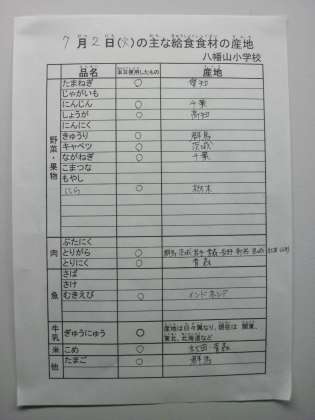 7月2日(火)の主な給食食材の産地
八幡山小学校
品名 本日使用したもの 産地
野菜・果物
たまねぎ ○ 愛知
じゃがいも
にんじん ○ 千葉
しょうが ○ 高知
にんにく
きゅうり ○ 群馬
キャベツ ○ 茨城
ながねぎ ○ 千葉
こまつな
もやし
にら ○ 栃木
肉
ぶたにく
とりがら ○ 群馬 茨城 岩手 青森
とりにく ○ 青森
魚
さば
さけ
むきえび ○ インドネシア
牛乳
ぎゅうにゅう ○ 産地は日々異なり、現在は 関東、
東北、北海道など
米 こめ ○ 秋田 青森
他 たまご ○ 群馬